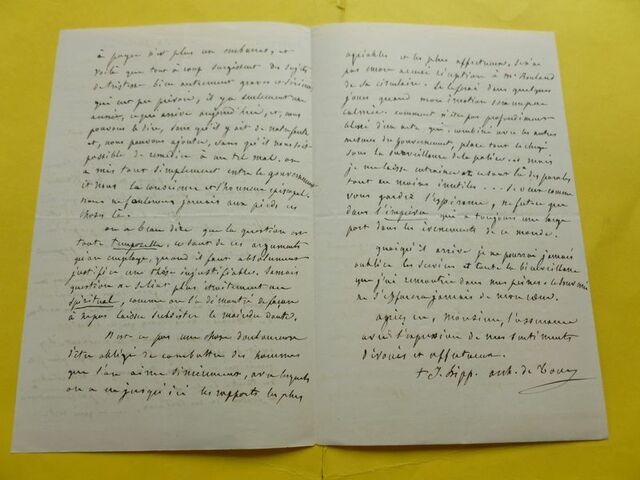 à payer n'est plus un embarras, et
voilà que tout à coup surgissent des sujets
de tristesse bien autrement graves et sérieux
qui eut pu prévoir, il y a seulement une
année, ce qui arrive aujourd'hui, et, nous
pouvons le dire, sans qu'il y ait de notre faute
et, nous pouvons ajouter, sans qu'il nous soit
possible de remédier à un tel mal. on
a mis tout simplement entre le gouvernement
et nous la conscience et l'honneur épiscopal.
nous ne foulerons jamais aux pieds ces
choses là.
on a beau dire que la question est
toute temporelle, ce sont de ces arguments
qu'on emploie, quand il faut absolument
justifier une thèse injustifiable. Jamais
question ne se liat plus étroitement au
spirituel, comme on l'a démontré de façon
à ne pas laisser subsister le moindre doute.
N'est-ce pas une chose douloureuse
d'être obligé de combattre des hommes
que l'on aime sincèrement, avec lesquels
on a eu jusqu'ici les rapports les plus
agréables et les plus affectueux. je n'ai
pas encore accusé réception à Mr Rouland
de sa circulaire. Je le ferai dans quelques
jours quand mon émotion sera un peu
calmée. comment n'être pas profondément
blessé d'un acte qui, combiné avec les autres
mesures du Gouvernement, place tout le clergé
sous la surveillance de la police.. mais
je me laisse entraîner et à des paroles
tout au moins inutiles...
vous gardez l'espérance, ne fut-ce que
dans l'imprévu qui a toujours une large
part dans les évènements de ce monde.
Quoiqu'il arrive je ne pourrai jamais
oublier les services et toute la bienveillance
que j'ai rencontrée dans mes peines: le souvenir
ne s'effacera jamais de mon cœur.
agréez, Monsieur, l'assurance
avec l'expression de mes sentiments
dévoués et affectueux.
+ J. Hipp. arch. de Tours